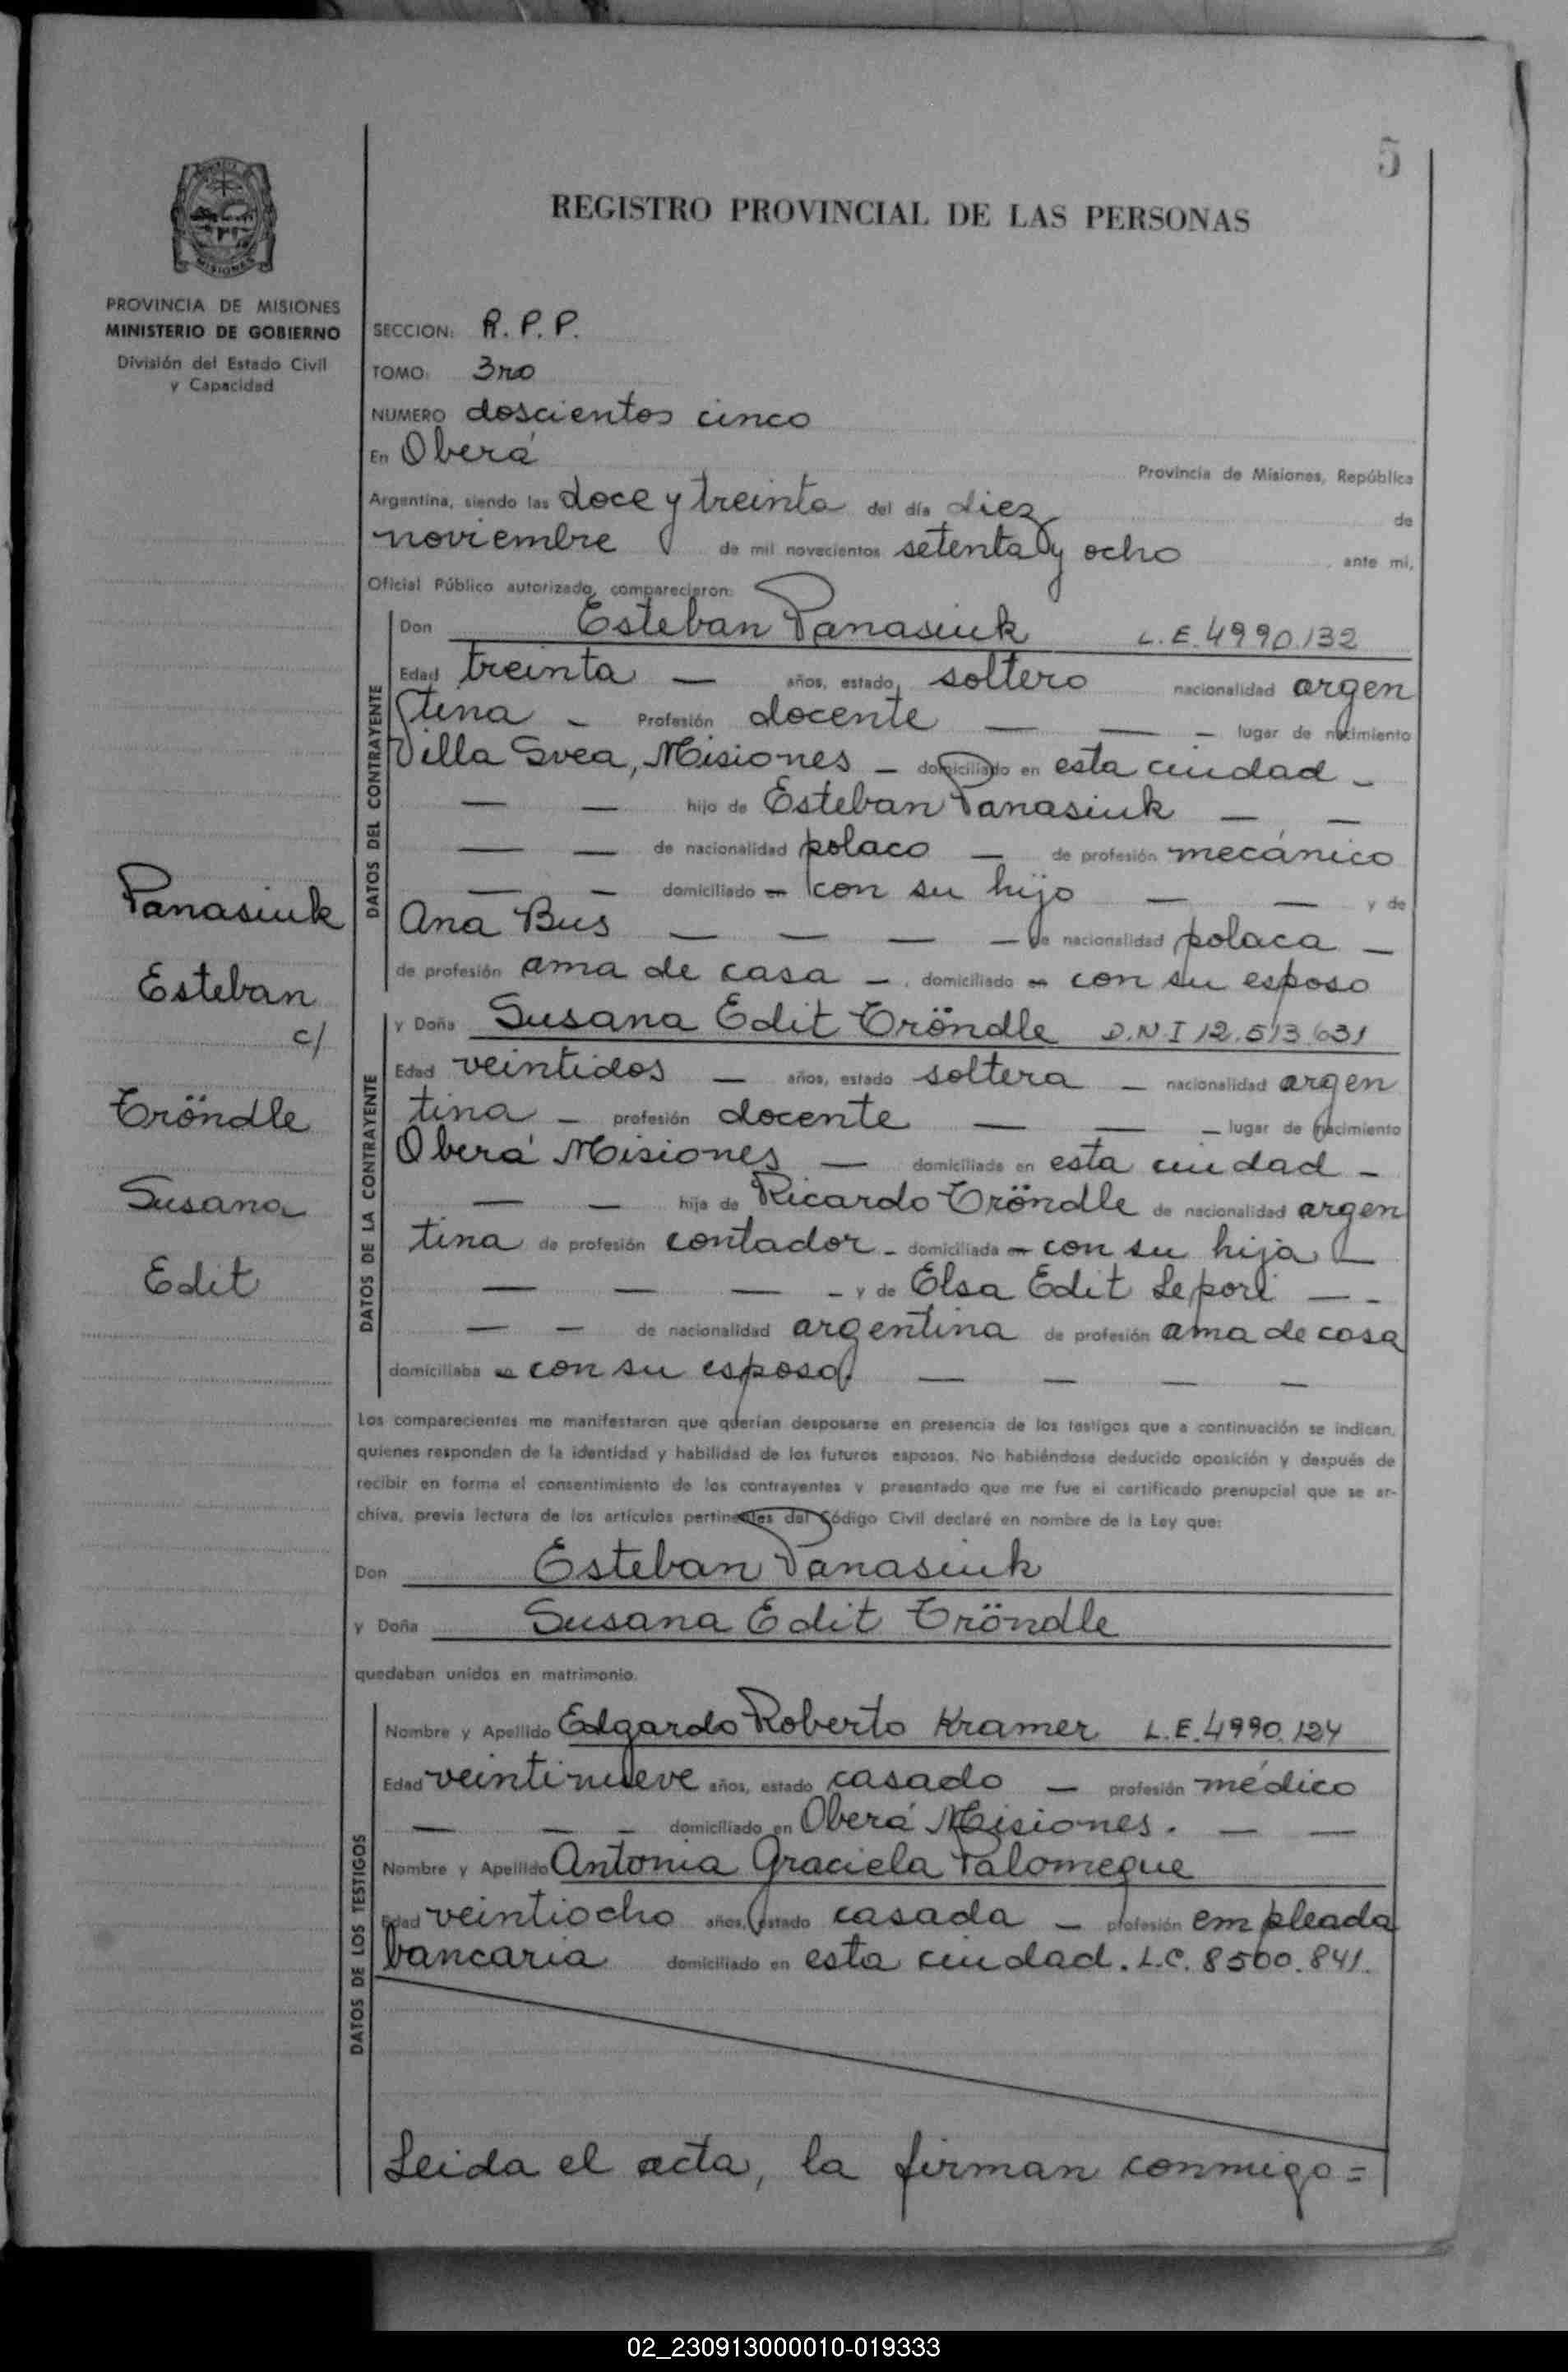 5
REGISTRO PROVINCIAL DE LAS PERSONAS
MISIONES
PROVINCIA DE MISIONES
MINISTERIO DE GOBIERNO
División del Estado Civil
y Capacidad
SECCION: R. P. P.
TOMO: 3ro
NUMERO doscientos cinco
En Oberá
Provincia de Misiones, República
Argentina, siendo las doce y treinta del día diez de
noviembre de mil novecientos setenta y ocho, ante mi,
Oficial Público autorizado, comparecieron:
DATOS DEL CONTRAYENTE
Don Esteban Panasiuk L.E. 4990.132
Edad treinta — años, estado, soltero nacionalidad argen
tina - Profesión docente — — — lugar de nacimiento
Villa Svea, Misiones — domiciliado en esta ciudad -
— — hijo de Esteban Panasiuk — —
— — de nacionalidad polaco — de profesión mecánico
— — domiciliado en con su hijo — — y de
Ana Bus — — — — de nacionalidad polaca —
de profesión ama de casa — , domiciliado en con su esposo
Panasiuk
Esteban
c/
Tröndle
Susana
Edit
DATOS DE LA CONTRAYENTE
y Doña Susana Edit Tröndle D.N.I 12.513.631
Edad veintidos — años, estado soltera — nacionalidad argen
tina — profesión docente — — — lugar de nacimiento
Oberá Misiones — domiciliada en esta ciudad -
— — hija de Ricardo Tröndle de nacionalidad argen
tina de profesión contador - domiciliada en con su hija —
— — — - y de Elsa Edit Lepori — -
— — de nacionalidad argentina de profesión ama de casa
domiciliaba en con su esposo. — — — —
Los comparecientes me manifestaron que querían desposarse en presencia de los testigos que a continuación se indican,
quienes responden de la identidad y habilidad de los futuros esposos. No habiéndose deducido oposición y después de
recibir en forma el consentimiento de los contrayentes y presentado que me fue el certificado prenupcial que se ar-
chiva, previa lectura de los artículos pertinentes del Código Civil declaré en nombre de la Ley que:
Don Esteban Panasiuk
y Doña Susana Edit Tröndle
quedaban unidos en matrimonio.
DATOS DE LOS TESTIGOS
Nombre y Apellido Edgardo Roberto Kramer L.E. 4990.124
Edad veintinueve años, estado casado — profesión médico
— — — domiciliado en Oberá Misiones. — —
Nombre y Apellido Antonia Graciela Palomeque
Edad veintiocho años, estado casada — profesión empleada
bancaria domiciliado en esta ciudad. L.C. 8500.841.
Leida el acta, la firman conmigo=
02_230913000010-019333